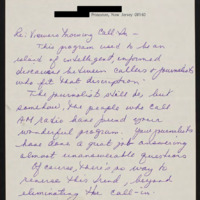 Princeton, New Jersey 08540
Re: Viewers Morning Call-In –
This program used to be an
island of intelligent, informed
discourse between callers & journalists
who fit that description.
The journalists still do but
somehow, the people who call
AM radio have found your
wonderful program. Your journalists
have done a great job answering
almost unanswerable questions
Of course, there's no way to
reverse this trend, beyond
eliminating the call-in